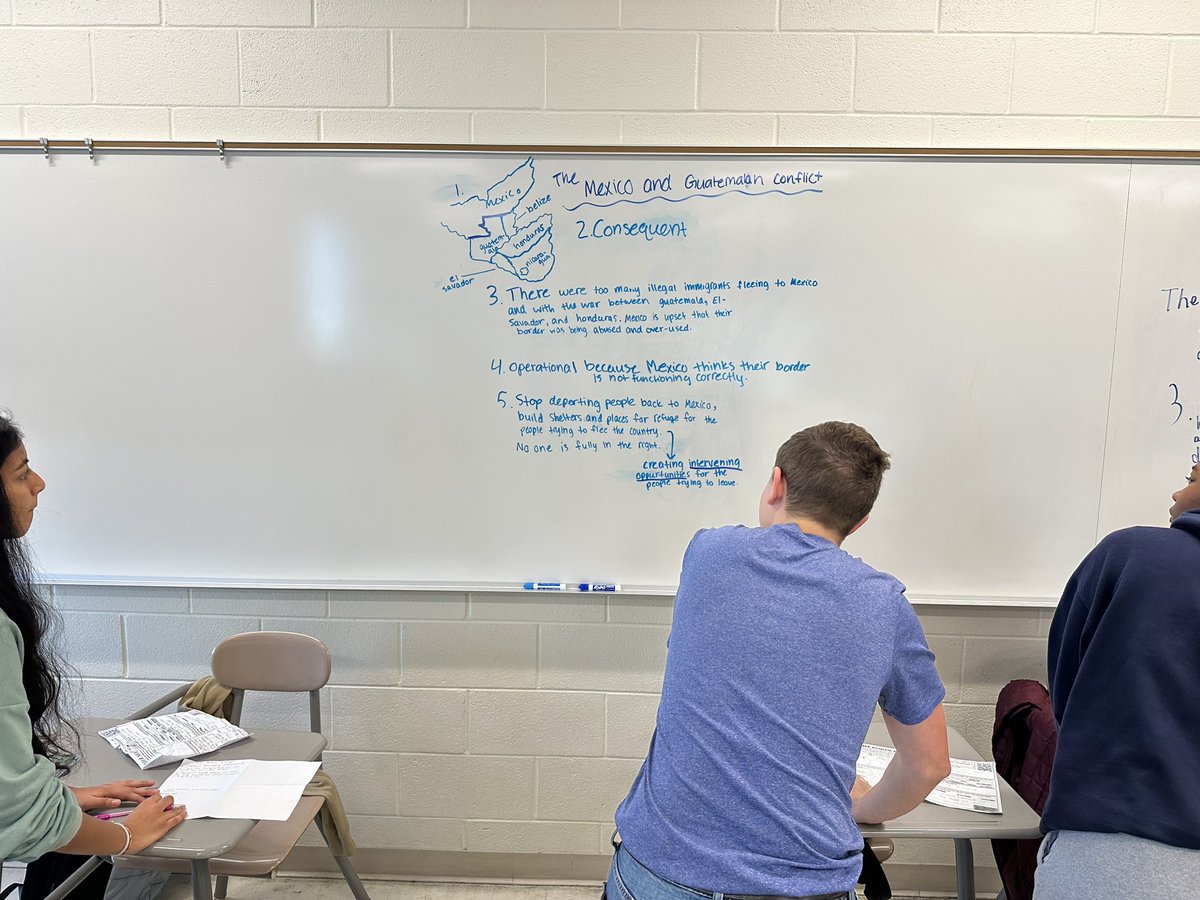 The Mexico and Guatemalan conflict
1.
Mexico
belize
guatemala
honduras
nicaragua
el
savador
2. Consequent
3. There were too many illegal immigrants fleeing to Mexico
and with the war between guatemala, El-
Savador, and honduras. Mexico is upset that their
border was being abused and over-used.
4. operational because Mexico thinks their border
is not functioning correctly.
5. Stop deporting people back to Mexico,
build shelters and places for refuge for the
people trying to flee the country.
No one is fully in the right.
creating intervening
oppurtunities for the
people trying to leave.
The
3.